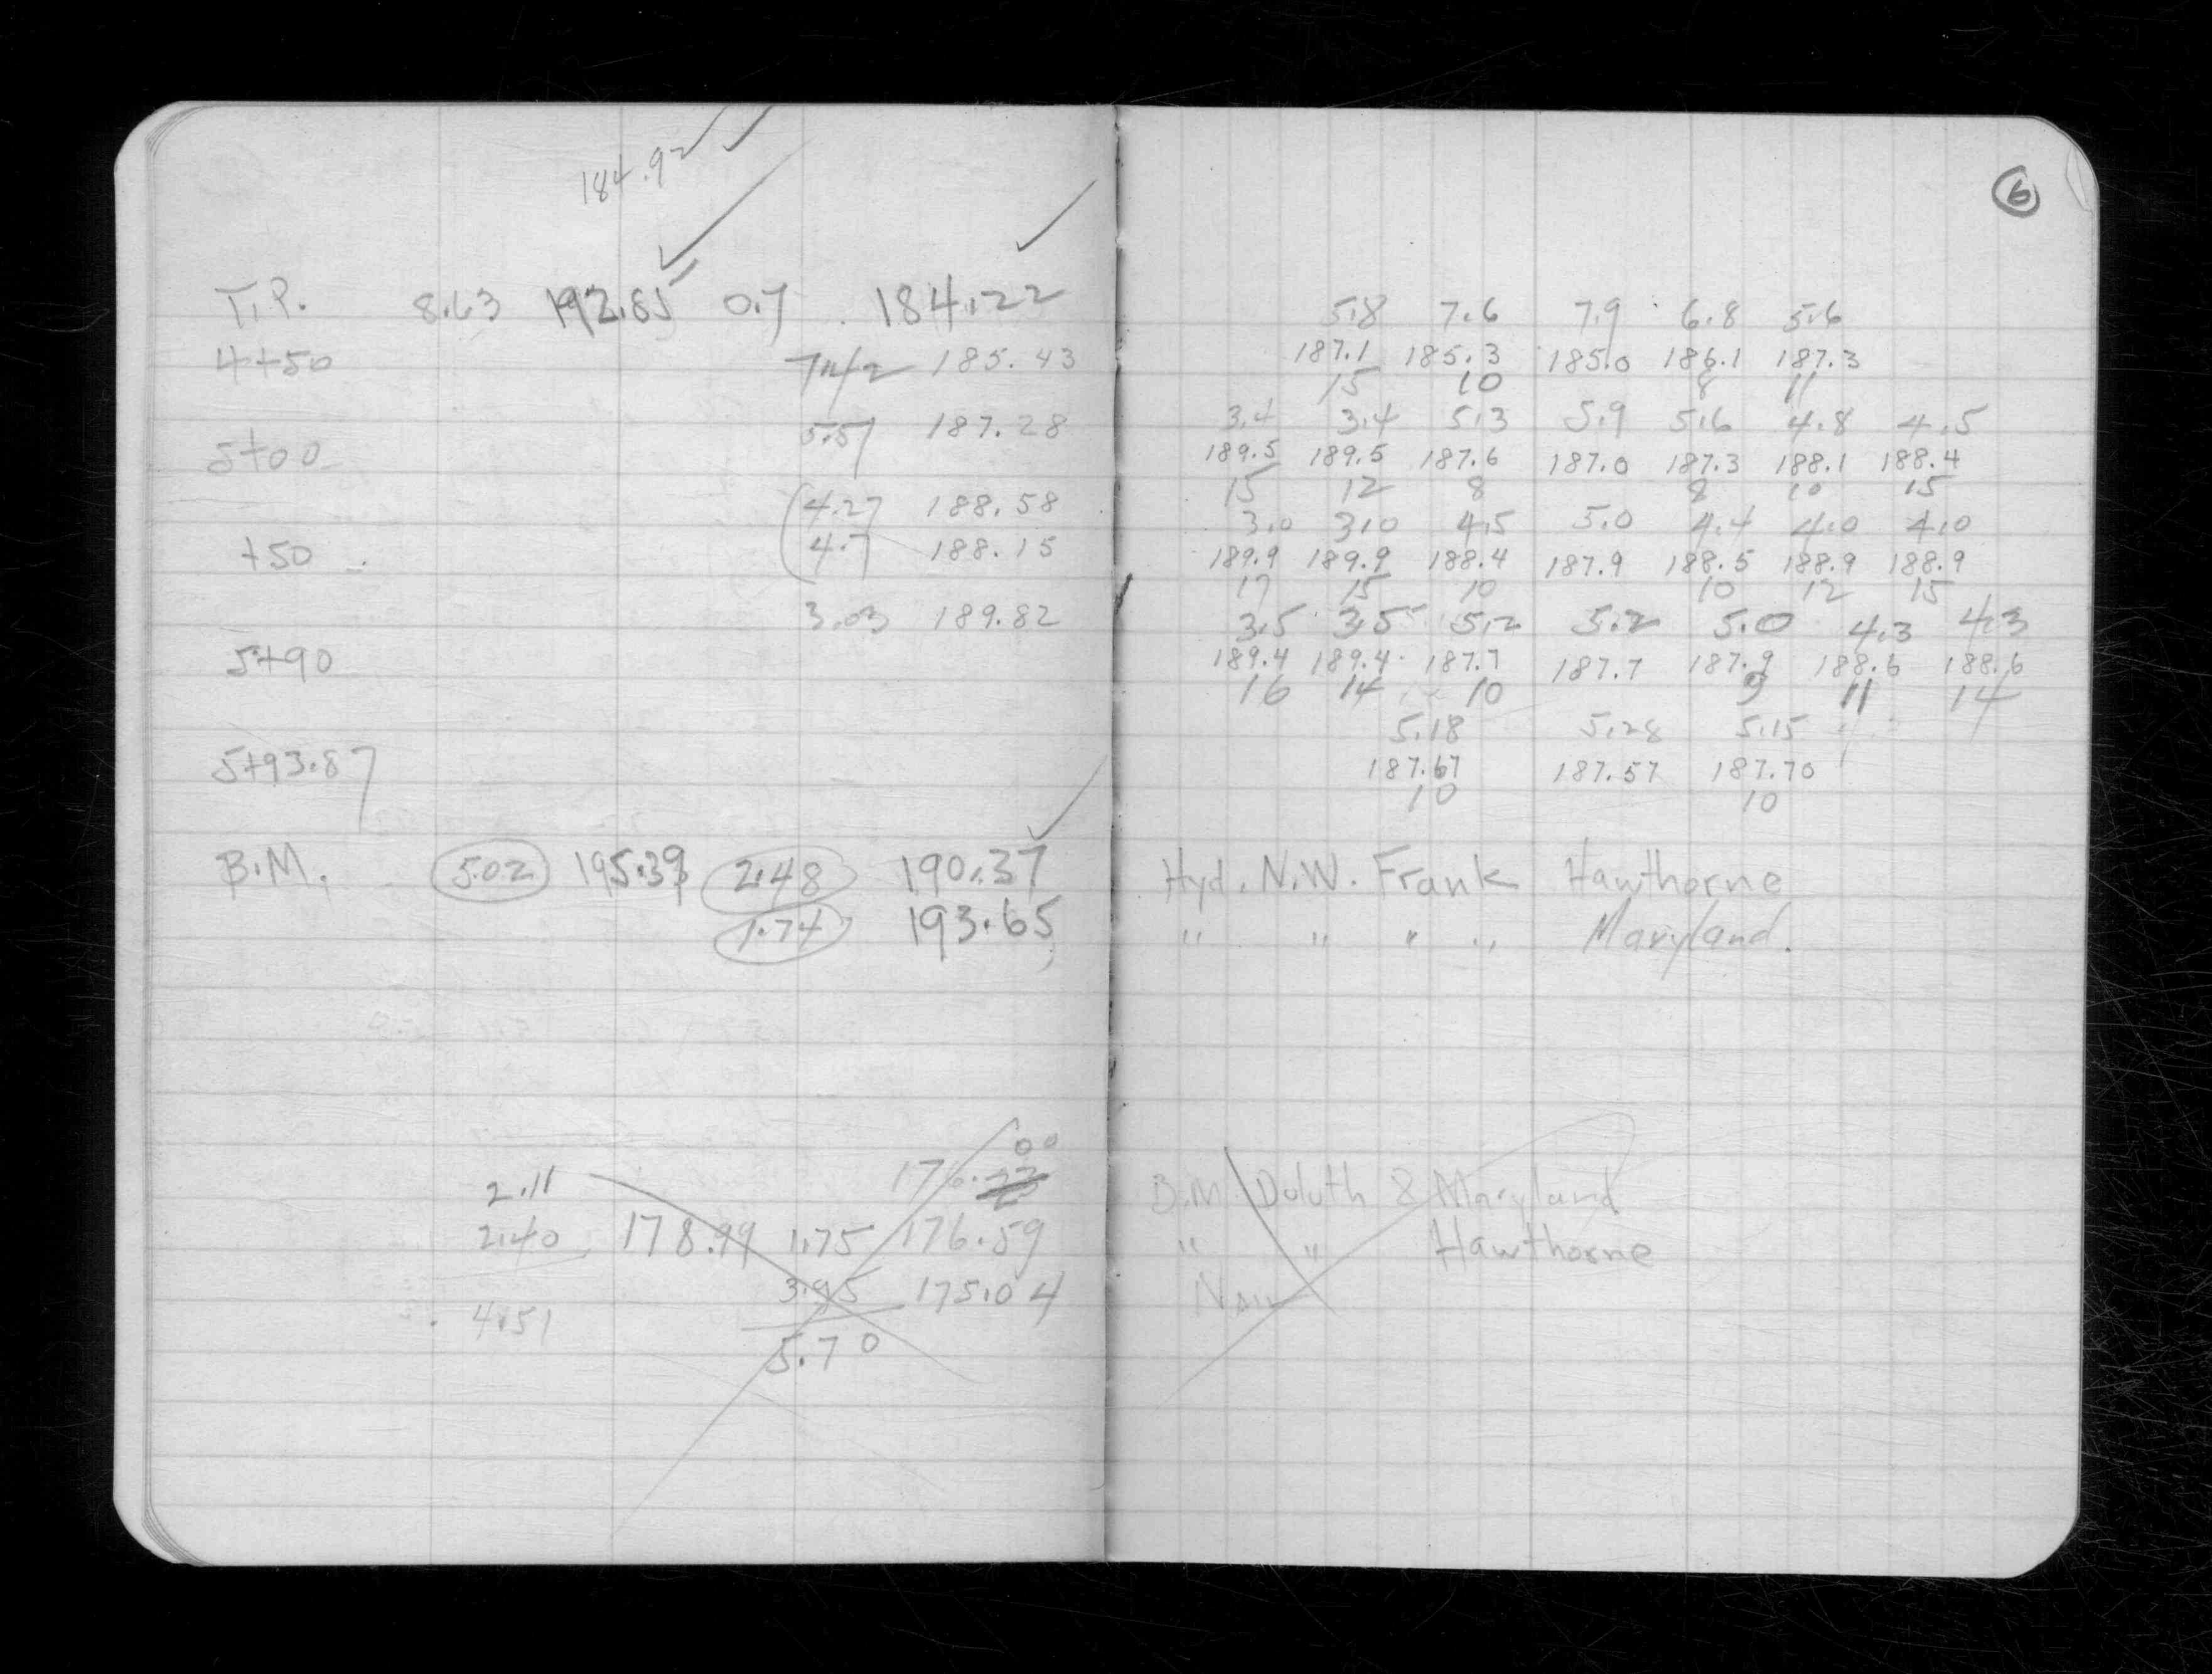 184.92
T.P. 8.63 192.85 0.7 184.22
4+50 7.42 185.43
5.57 187.28
5+00
4.27 188.58
+50 4.7 188.15
3.03 189.82
5+90
5+93.87
B.M. 5.02 195.39 2.48 190.37
1.74 193.65
00
2.11 176.
2.40 178.99 1.75 176.59
3.95 175.04
4.51
5.70
6
5.8 7.6 7.9 6.8 5.6
187.1 185.3 185.0 186.1 187.3
15 10 8 11
3.4 3.4 5.3 5.9 5.6 4.8 4.5
189.5 189.5 187.6 187.0 187.3 188.1 188.4
15 12 8 8 10 15
3.0 3.0 4.5 5.0 4.4 4.0 4.0
189.9 189.9 188.4 187.9 188.5 188.9 188.9
17 15 10 10 12 15
3.5 3.5 5.2 5.2 5.0 4.3 4.3
189.4 189.4 187.7 187.7 187.9 188.6 188.6
16 14 10 9 11 14
5.18 5.28 5.15
187.67 187.57 187.70
10 10
Hyd. N.W. Frank Hawthorne
" " " " Maryland.
B.M Duluth & Maryland
" " Hawthorne